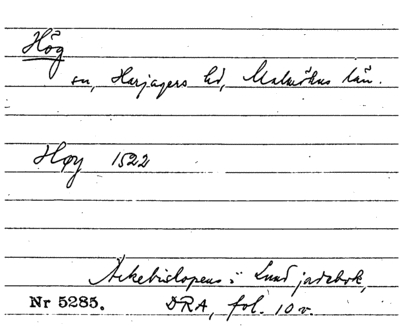 Hög
sn, Harjagers hd, Malmöhus län.
Høy 1522
Ärkebiskopens i Lund jordebok,
Nr 5285. DRA, fol. 10 v.